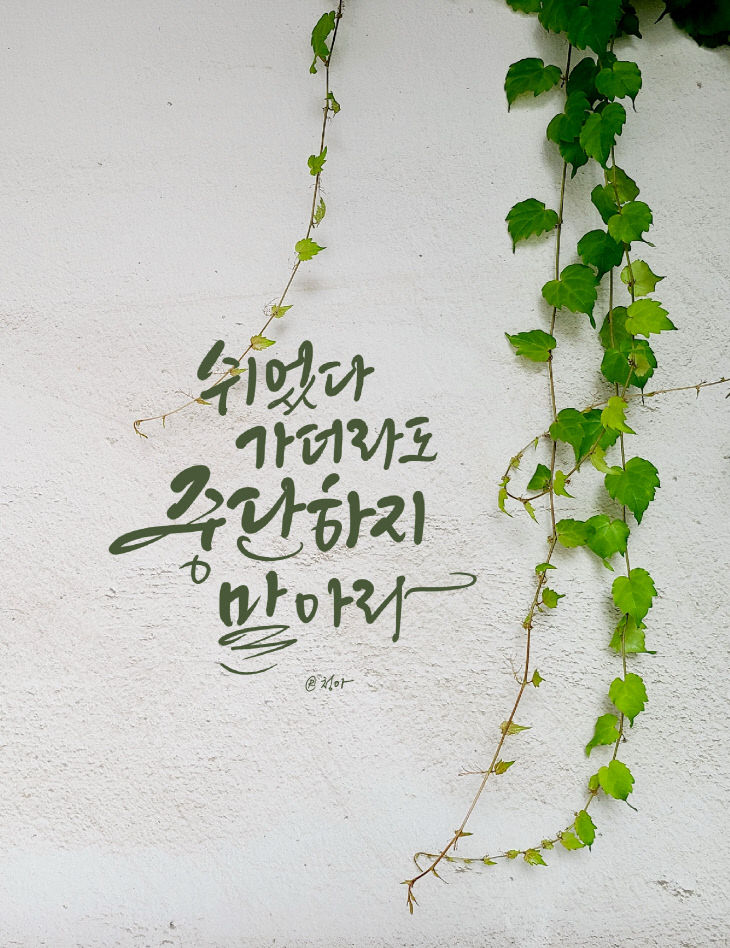 쉬었다
가더라도
중단하지
말아라
@청아